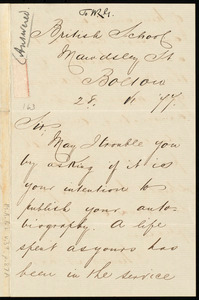 To WLG.
(Answered)
British School
Mawdsley St
Bolton
28. 11 77.
163
Sir,
May I trouble you
by asking if it is
your intention to
publish your auto-
biography. A life
spent as yours has
been in the service